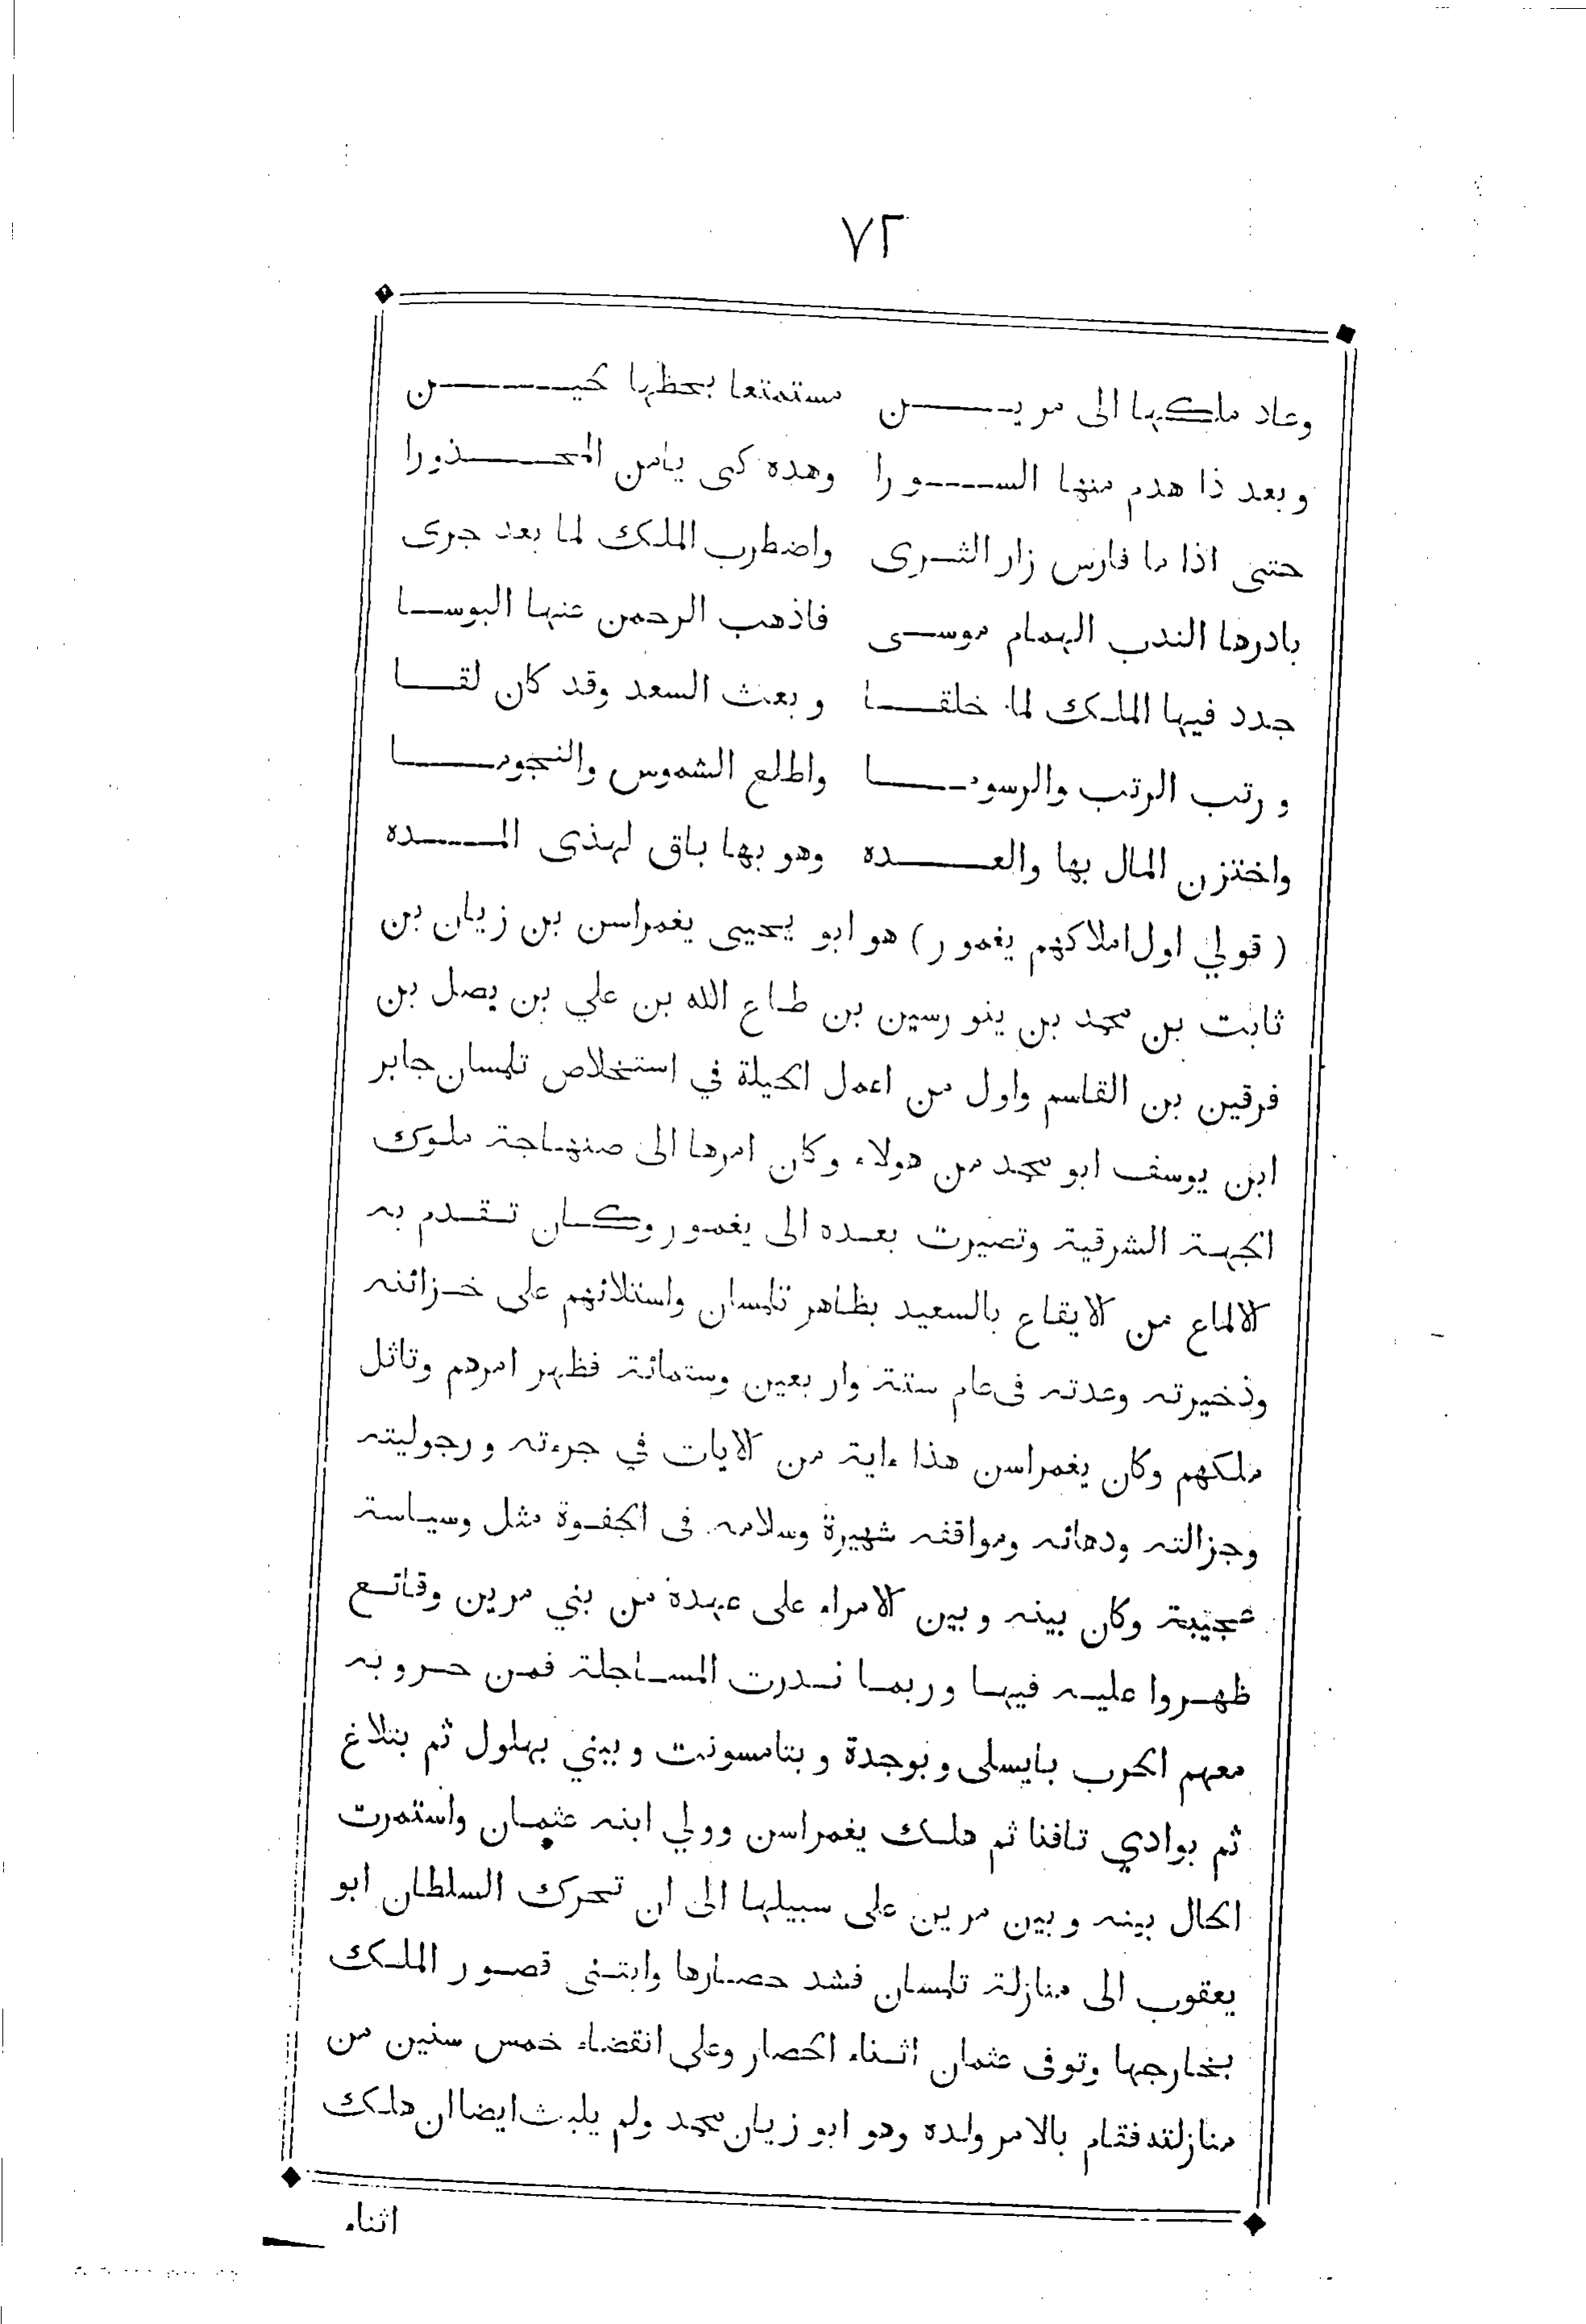 ٧٢
وعاد ملكها الى مرين مستمتعا بحظها كين
وبعد ذا هدم منها السورا وهده كى يامن المحذورا
حتى اذا ما فارس زار الثرى واضطرب الملك لما بعد جرى
بادرها الندب الهمام موسى فاذهب الرحمن عنها البوسا
جدد فيها الملك لما خلقا وبعث السعد وقد كان لقا
ورتب الرتب والرسوما واطلع الشموس والنجوما
واختزن المال بها والعده وهو بها باق لهذى المده
( قولي اول املاكهم يغمور ) هو ابو يحيى يغمراسن بن زيان بن
ثابت بن محمد بن ينورسين بن طاع الله بن علي بن يصل بن
فرقين بن القاسم واول من اعمل الحيلة في استخلاص تلمسان جابر
ابن يوسف ابو محمد من هولاء وكان امرها الى صنهاجة ملوك
الجهة الشرقية وتصيرت بعده الى يغمور وكان تقدم به
الالماع من الايقاع بالسعيد بظاهر تلمسان واستلائهم على خزائنه
وذخيرته وعدته فى عام ستة واربعين وستمائة فظهر امرهم وتاثل
ملكهم وكان يغمراسن هذا ءاية من الايات في جرءته ورجوليته
وجزالته ودهائه ومواقفه شهيرة وسلامه فى الجفوة مثل وسياسة
عجيبة وكان بينه وبين الامراء على عهدة من بني مرين وقائع
ظهروا عليه فيها وربما ندرت المساجلة فمن حروبه
معهم الحرب بايسلى وبوجدة وبتامسونت وببني بهلول ثم بتلاغ
ثم بوادي تافنا ثم هلك يغمراسن وولي ابنه عثمان واستمرت
الحال بينه وبين مرين على سبيلها الى ان تحرك السلطان ابو
يعقوب الى منازلة تلمسان فشد حصارها وابتنى قصور الملك
بخارجها وتوفى عثمان اثناء الحصار وعلى انقضاء خمس سنين من
منازلته فقام بالامر ولده وهو ابو زيان محمد ولم يلبث ايضا ان هلك
اثناء